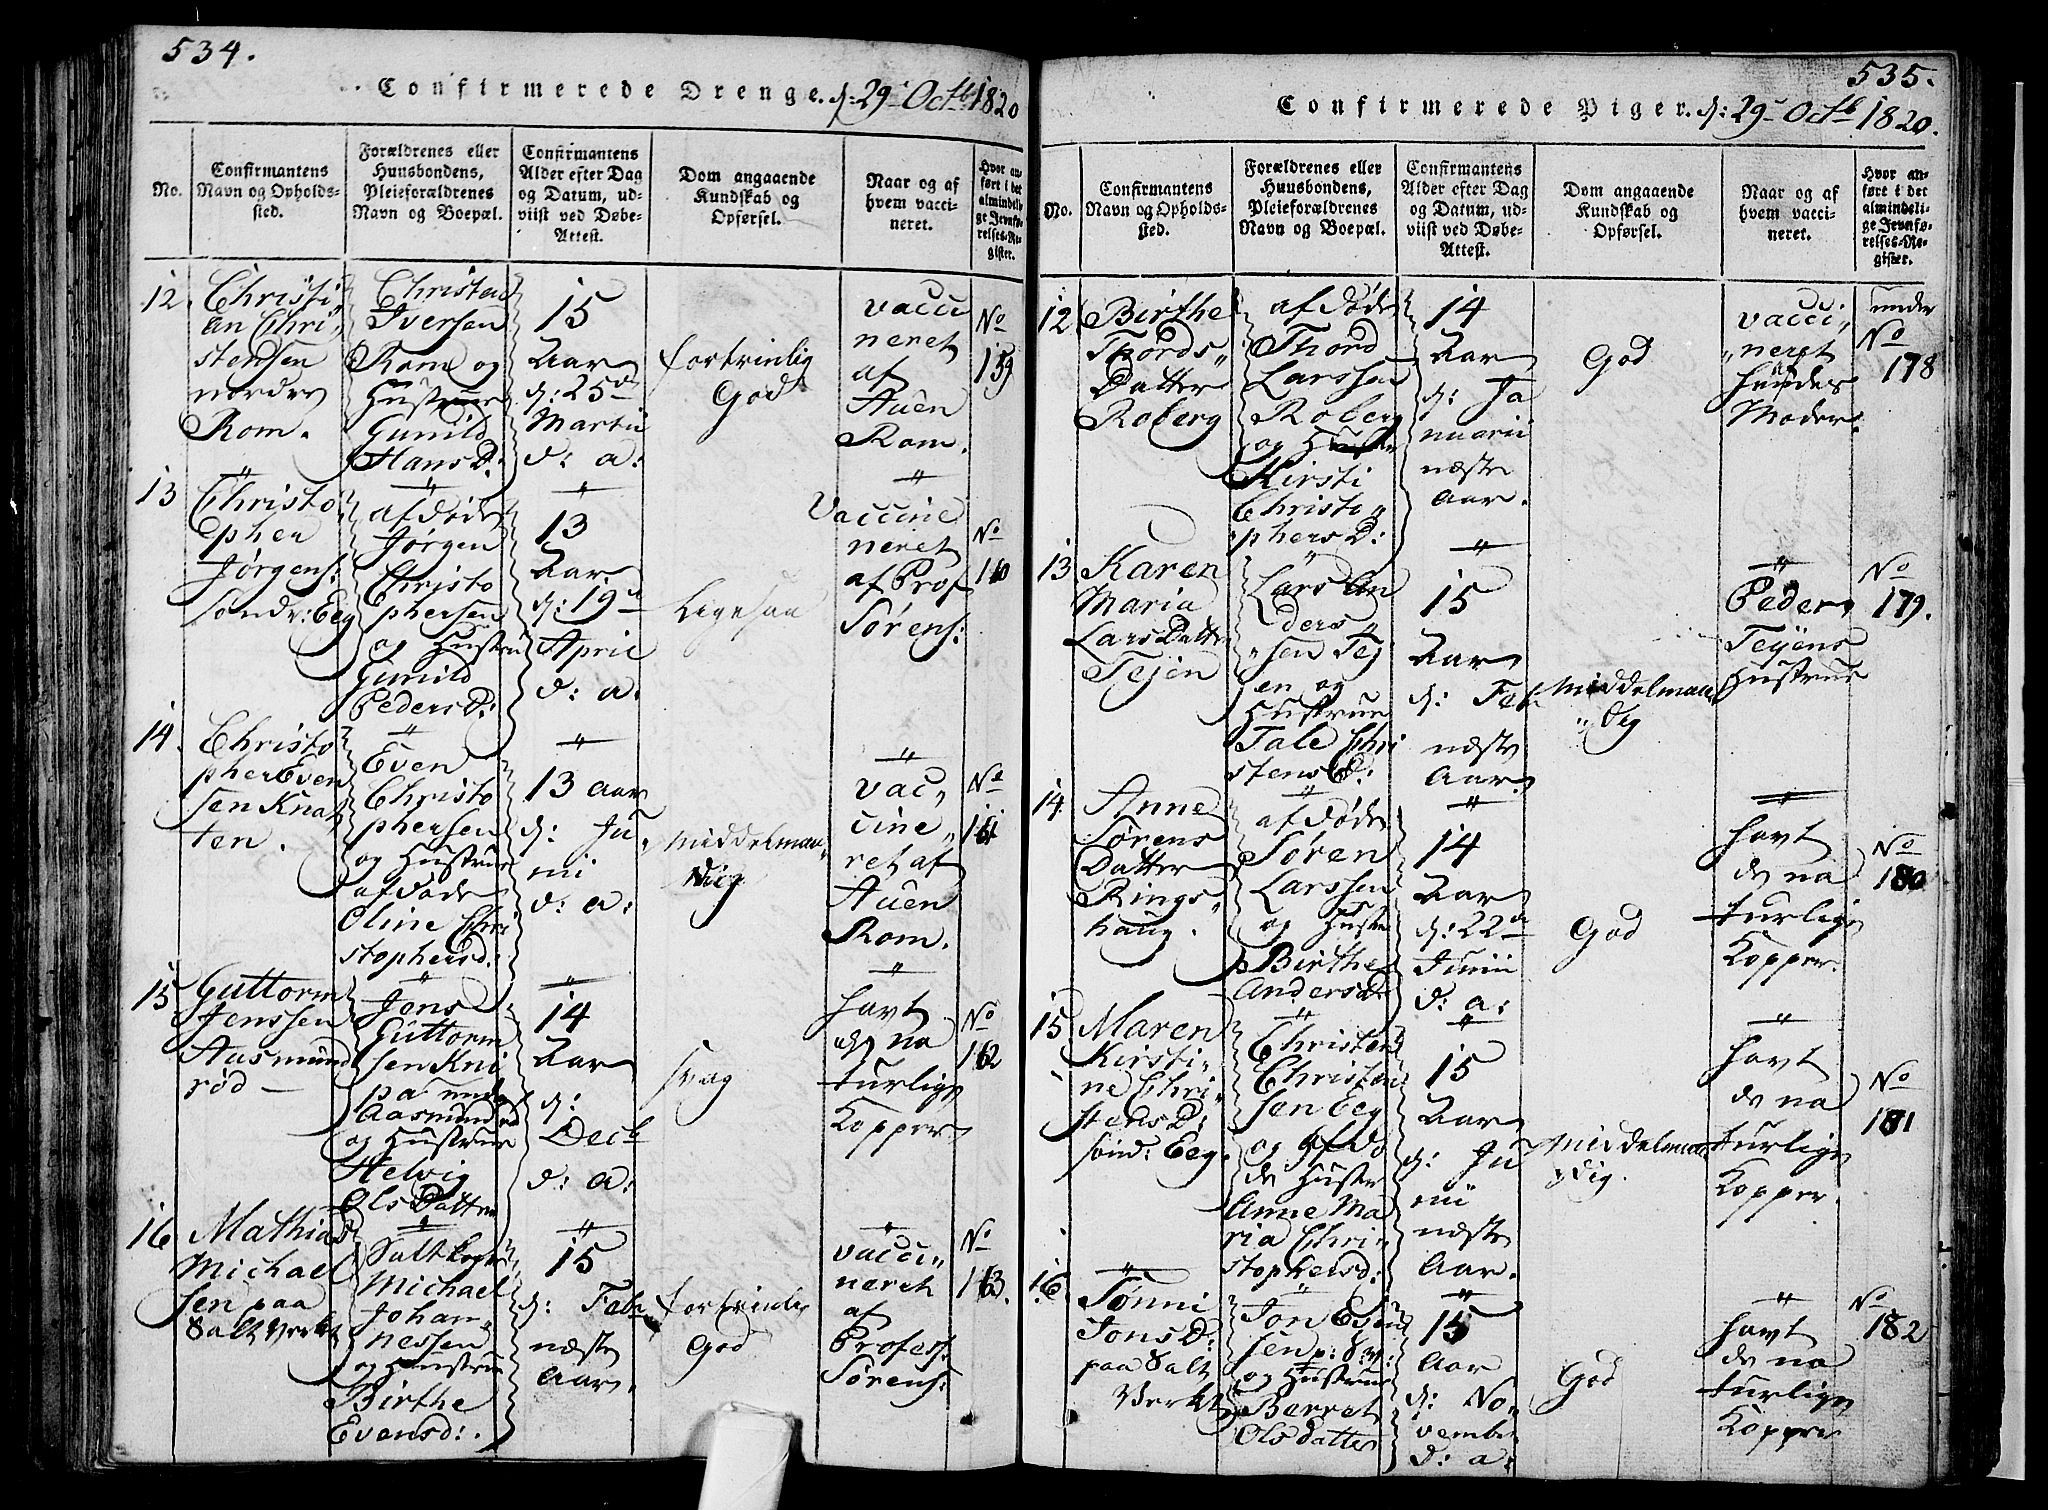 534.
Confirmerede Drenge. d: 29 Octb 1820
No.
Confirmantens
Navn og Opholds-
sted.
Forældrenes eller
Huusbondens,
Pleieforældrenes
Navn og Boepæl.
Confirmantens
Alder efter Dag
og Datum, ud-
viist ved Døbe-
Attest.
Dom angaaende
Kundskab og
Opførsel.
Naar og af
hvem vacci-
neret.
Hvor an-
ført i det
almindeli-
ge Jevnfø-
relses-Re-
gister.
12.
Christi
an Chri
stensen
nordre
Rom.
Christen
Iversen
Rom og
Hustrue
Gunild
Hans D:
15
Aar
d: 25de
Martii
d: a:
fortrinlig
God
vacci
neret
af
Auen
Rom.
No
159
13
Christo
pher
Jørgens:
søndr: Eeg
afdøde
Jørgen
Christo
phersen
og Hustru
Gunild
Peders D:
13
Aar
d: 19de
April
d: a:
Ligesaa
Vaccine
neret
af Prof
Sørens:
No
160
14.
Christo
pher Even
sen Knat
ten.
Even
Christo
phersen
og Hustrue
afdøde
Oline Chri
stophersd:
13 aar
d: Ju
nii
d: a:
middelmaa
dig
vac„
cine„
ret af
Auen
Rom.
No
161
15
Guttorm
Jenssen
Aasmund
rød —
Jens
Guttorm
sen Kni
pa under
Aasmundrød
og Hustrue
Helvig
Ols Datter
14
Aar
d:
Decb
d: a:
svag
havt
de na
turlige
Kopper
No
162
16
Mathias
Michael
sen paa
Salt Verket
Saltkoger
Michael
Johan„
nessen
og Hustrue
Birthe
Evensd:.
15
d: Febr
næste
Aar.
fortrinlig
God
vacci„
neret
af
Profess:
Sørens:
No
163.
535.
Confirmerede Piger. d: 29 Octb 1820.
No.
Confirmantens
Navn og Opholds-
sted.
Forældrenes eller
Huusbondens,
Pleieforældrenes
Navn og Boepæl.
Confirmantens
Alder efter Dag
og Datum, ud-
viist ved Døbe-
Attest.
Dom angaaende
Kundskab og
Opførsel.
Naar og af
hvem vacci-
neret.
Hvor an-
ført i det
almindeli-
ge Jevnfø-
relses-Re-
gister.
12
Birthe
Thords„
Datter
Roberg
afdøde
Thord
Larssen
Roberg
og Hustrue
Kirsti
Christo„
phers D:
14
Aar
d: Ja
nuarii
næste
Aar.
God
vacci„
„neret
hendes
Moder.
under
No
178
13
Karen
Maria
Lars Datter
Tejen
Lars An
ders„
„sen Tej
en og
Hustrue
Tale Chri
stens D:
15
Aar
d: Feb
næste
Aar.
middelmaa
„dig
Peder
Tejens
Hustrue
No
179.
14
Anne
Sørens
Datter
Rings„
haug.
afdøde
Søren
Larssen
og Hustru
Birthe
Anders D
14
Aar
d: 22de
Junii
d: a:
God
havt
de na
turlige
Kopper.
No
180
15
Maren
Kirsti„
ne Chri„
stens D:
sønd: Eeg.
Christen
Christen
sen Eeg
og Afdø
de Hustr
Anne Ma
ria Chri„
stophersd:
15
Aar
d: Ju
nii
næste
Aar.
middelmaa
„dig.
havt
de na
turlige
Kopper.
No
181
16.
Tønni
Jons D:
paa Salt
Verket
Jon
sen p: S:W:
og Hustrue
Berret
Olsdatter
15
Aar
d: No„
vember
d: a:
God
havt
de na
turlige
Kopper
No
182